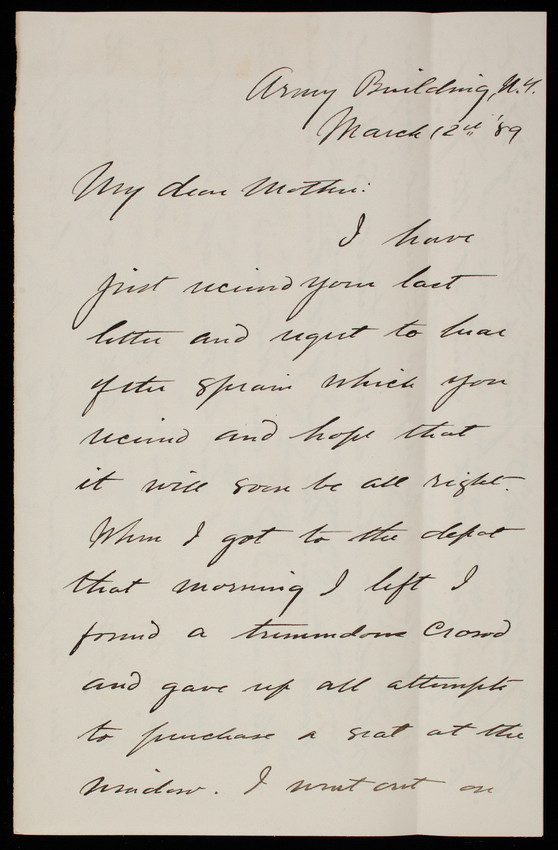 Army Building, N.Y.
March 12th '89
My dear Mother:
I have
just received your last
letter and regret to hear
of the sprain which you
received and hope that
it will soon be all right.
When I got to the depot
that morning I left I
found a tremendous crowd
and gave up all attempts
to purchase a seat at the
window. I went out on